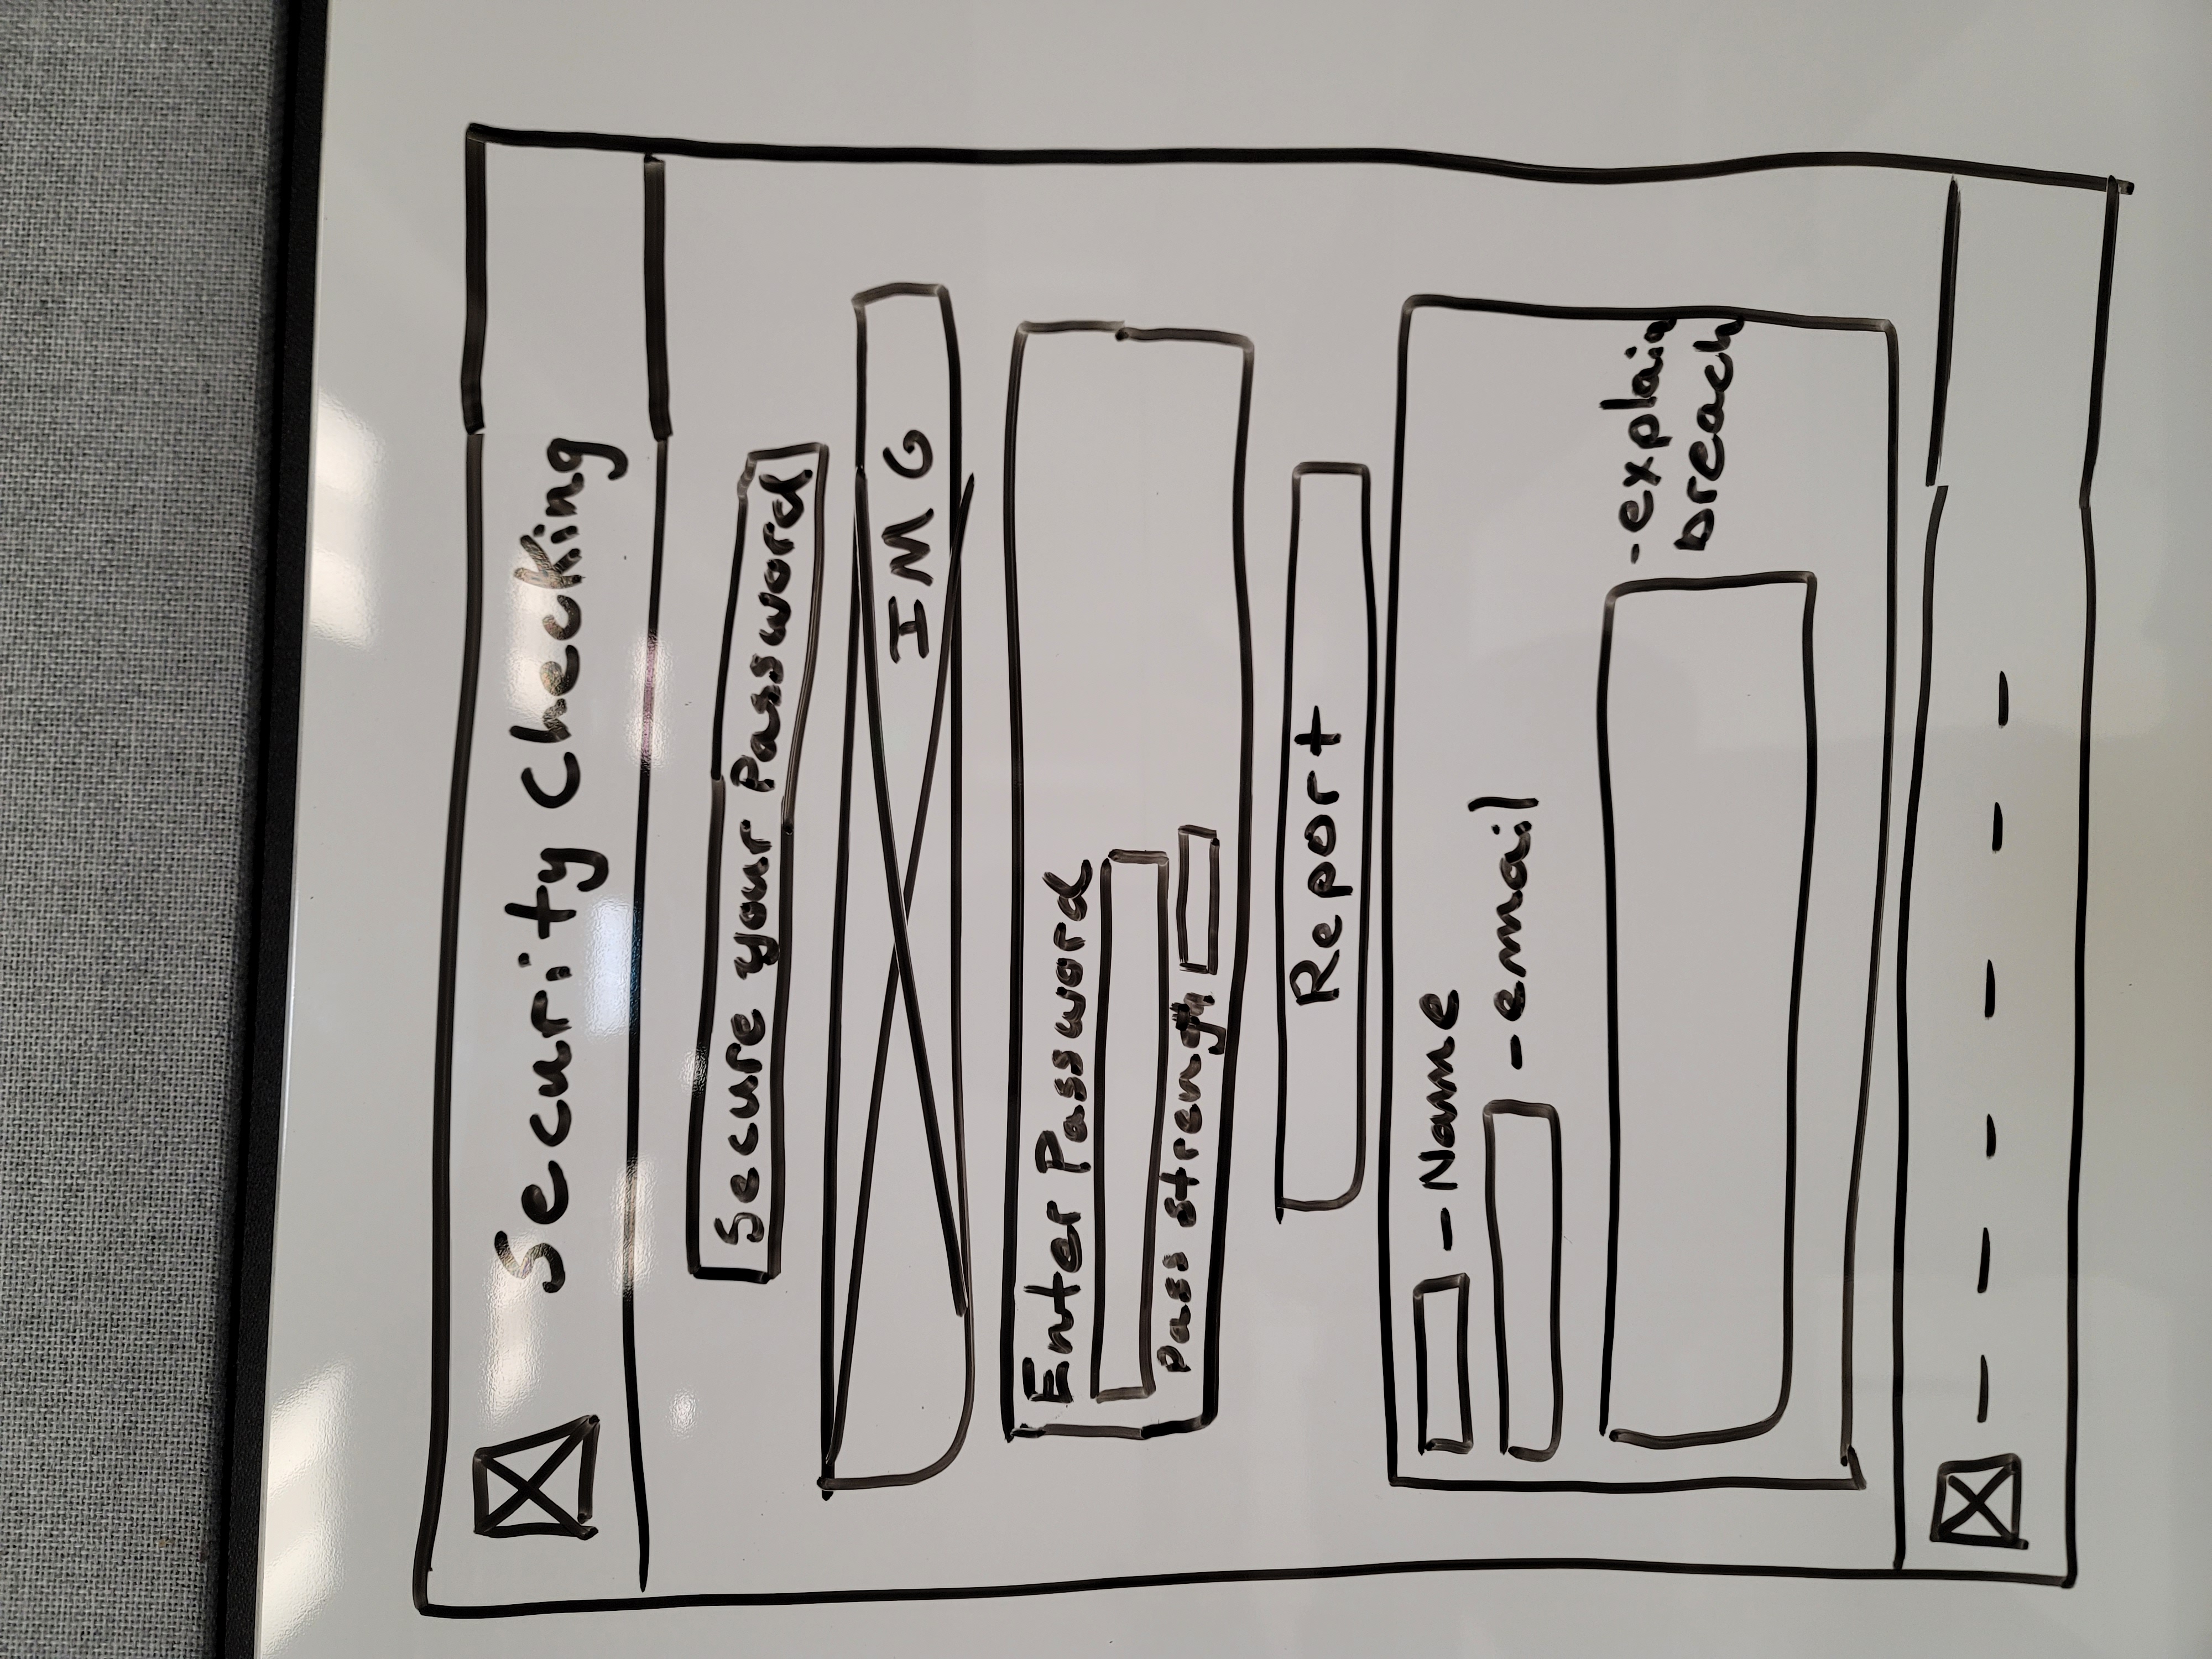 Security Checking
Secure your Password
IMG
Enter Password
Pass strength
Report
- Name
- email
- explain
breach